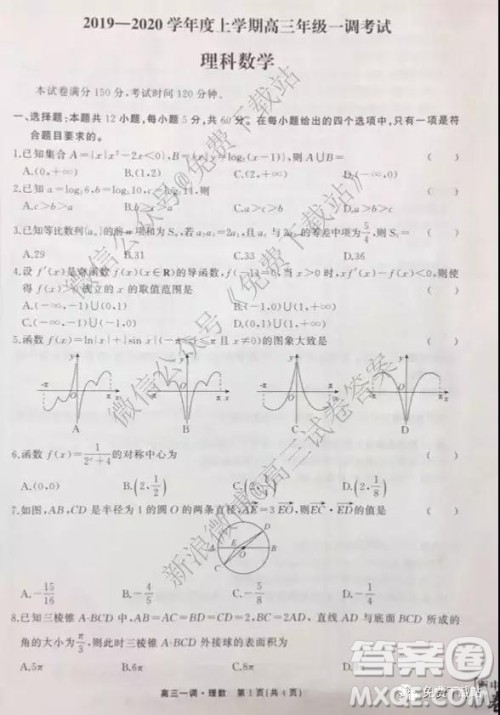 2019—2020学年度上学期高三年级一调考试
理科数学
本试卷满分150分,考试时间120分钟。
一、选择题:本题共12小题,每小题5分,共60分。在每小题给出的四个选项中,只有一项是符
合题目要求的。
1.已知集合A={x|x²-2x<0},B={x|y=log₂(x-1)},则A∪B= ( )
A.(0,+∞) B.(1,2) C.(2,+∞) D.(-∞,0)
2.已知a=log₃6,b=log₅10,c= 则 ( )
A.c>b>a B.b>c>a C.a>c>b D.a>b>c
3.已知等比数列{aₙ}的前n项和为Sₙ,若a₂a₃=2a₁,且a₄与2a₇的等差中项为5/4,则S₅= ( )
A.29 B.31 C.33 D.36
4.设f′(x)是 函数f(x)(x∈R)的导函数, 当x>0时,xf′(x)-f(x)<0,则使
得 的x的取值范围是 ( )
A.(-∞,-1)∪(0,1) B.(-1,0)∪(1,+∞)
C.(-∞,-1)∪(-1,0) D.(0,1)∪(1,+∞)
5.函数f(x)=ln|x|+|sin x|(-π≤x≤π且x≠0)的图象大致是 ( )
-π O π x y
A B C D
6.函数f(x)=1/(2ˣ+4)的对称中心为 ( )
A.(0,0) B.(2,1/4) C.(0,1/8) D.(2,1/8)
7.如图,AB,CD是半径为1的圆O的两条直径,AE=3EO,则EC·ED的值是 ( )
A B C D E O
A.-15/16 B.-4/5 C.-5/8 D.-1/4
8.已知三棱锥A-BCD中,AB=AC=BD=CD=2,BC=2AD,直线AD与底面BCD所成的
角的大小为π/3,则此时三棱锥A-BCD外接球的表面积 ( )
A.5π B.6π C.7π D.8π
高三一调·理数 第1页(共4页)
微信公众号@免费下载站
微信公众号《免费下载站》
新浪微博@高三试卷答案
答案圈
MXQE.COM
免费下载站